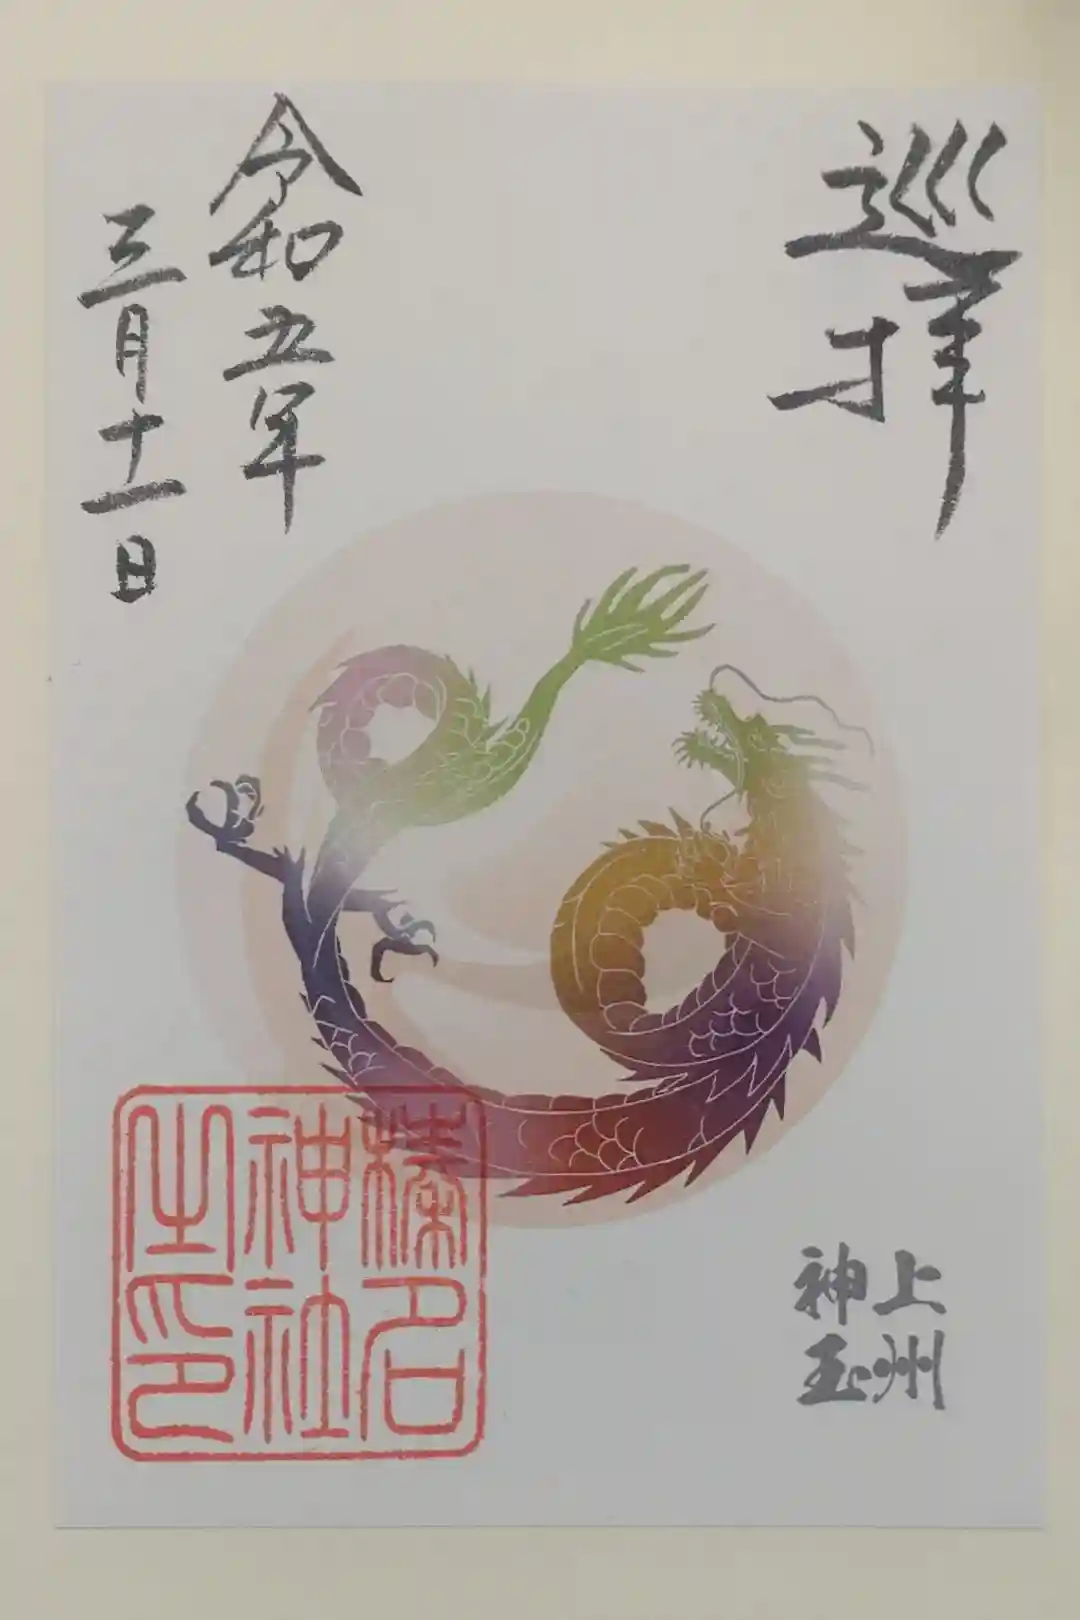 巡拝
令和五年
三月十一日
上州
神玉
榛名
神社
之印